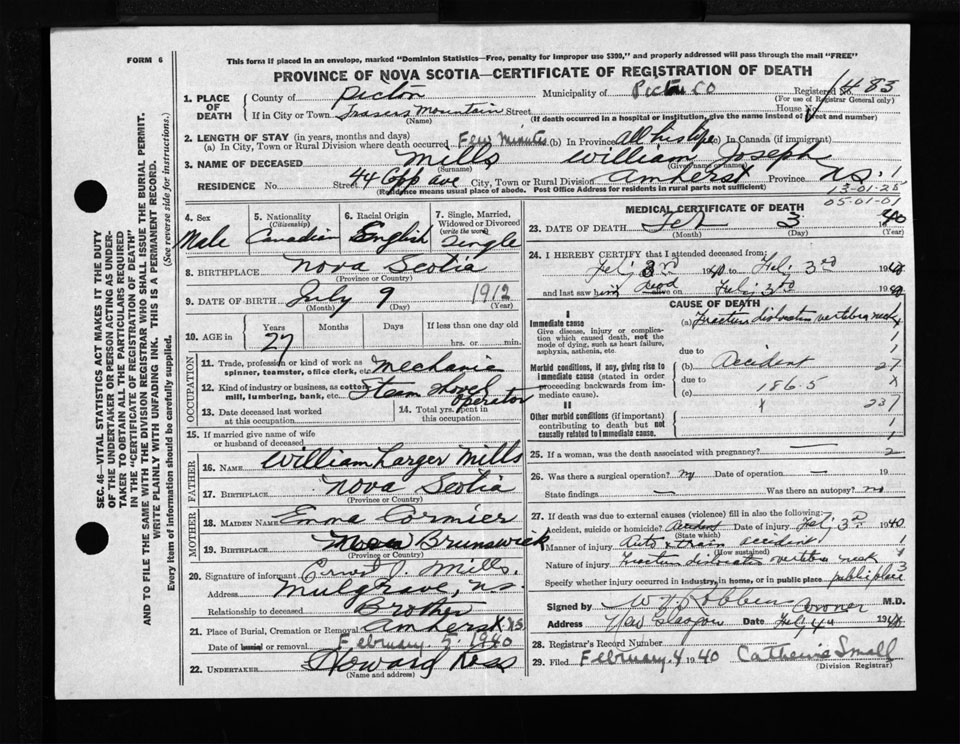 FORM 6
This form if placed in an envelope, marked "Dominion Statistics—Free, penalty for improper use $300," and properly addressed will pass through the mail "FREE"
PROVINCE OF NOVA SCOTIA—CERTIFICATE OF REGISTRATION OF DEATH
SEC. 46—VITAL STATISTICS ACT MAKES IT THE DUTY
OF THE UNDERTAKER OR PERSON ACTING AS UNDER-
TAKER TO OBTAIN ALL THE PARTICULARS REQUIRED
IN THE "CERTIFICATE OF REGISTRATION OF DEATH"
AND TO FILE THE SAME WITH THE DIVISION REGISTRAR WHO SHALL ISSUE THE BURIAL PERMIT.
WRITE PLAINLY WITH UNFADING INK. THIS IS A PERMANENT RECORD.
Every item of information should be carefully supplied. (See reverse side for instructions.)
1. PLACE OF DEATH
County of Pictou Municipality of Pictou CO Registered No. 1483
(For use of Registrar General only)
If in City or Town Frasers Mountain Street House No.
(Name) (If death occurred in a hospital or institution, give the name instead of street and number)
2. LENGTH OF STAY (in years, months and days)
(a) In City, Town or Rural Division where death occurred Few Minutes (b) In Province All his life (c) In Canada (if immigrant)
3. NAME OF DECEASED Mills William Joseph
(Surname) (Given name or names)
RESIDENCE No. 44 Street Copp ave City, Town or Rural Division Amherst Province N.S. 1
(Residence means usual place of abode. Post Office Address for residents in rural parts not sufficient)
13-01-25
05-01-01
4. Sex Male
5. Nationality (Citizenship) Canadian
6. Racial Origin English
7. Single, Married, Widowed or Divorced (write the word) Single
8. BIRTHPLACE Nova Scotia
(Province or Country)
9. DATE OF BIRTH July 9 1912
(Month) (Day) (Year)
10. AGE in Years Months Days If less than one day old
27 hrs. or min.
OCCUPATION
11. Trade, profession or kind of work as spinner, teamster, office clerk, etc. Mechanic
12. Kind of industry or business, as cotton mill, lumbering, bank, etc. Steam shovel operator
13. Date deceased last worked at this occupation
14. Total yrs. spent in this occupation
15. If married give name of wife or husband of deceased
FATHER
16. NAME William Larger Mills
17. BIRTHPLACE Nova Scotia
(Province or Country)
MOTHER
18. MAIDEN NAME Emma Cormier
19. BIRTHPLACE New Brunswick
(Province or Country)
20. Signature of informant Ernest J. Mills.
Address Mulgrave, N.S.
Relationship to deceased Brother
21. Place of Burial, Cremation or Removal Amherst N.S
Date of burial or removal February 5 1940
22. UNDERTAKER Howard Ross
(Name and address)
MEDICAL CERTIFICATE OF DEATH
23. DATE OF DEATH Feb 3 1940
(Month) (Day) (Year)
24. I HEREBY CERTIFY that I attended deceased from:
Feb; 3rd 1940 to Feb; 3rd 1940
and last saw him Dead alive on Feb; 3rd 1940
CAUSE OF DEATH
I
Immediate cause
Give disease, injury or complication which caused death, not the mode of dying, such as heart failure, asphyxia, asthenia, etc.
(a) Fracture dislocation vertebra neck
due to
Morbid conditions, if any, giving rise to immediate cause (stated in order proceeding backwards from immediate cause).
(b) Accident 27
due to
(c) 186.5 x
x 237
II
Other morbid conditions (if important) contributing to death but not causally related to immediate cause.
25. If a woman, was the death associated with pregnancy? — 2
26. Was there a surgical operation? no Date of operation — 19
State findings — Was there an autopsy? no
27. If death was due to external causes (violence) fill in also the following:
Accident, suicide or homicide? Accident Date of injury Feb; 3rd 1940
(State which)
Manner of injury Auto & train accident 1
(How sustained)
Nature of injury Fracture dislocation vertebra neck
Specify whether injury occurred in industry, in home, or in public place public place 3
Signed by Robbins Coroner M.D.
Address New Glasgow Date Feb; 4th 1940
28. Registrar's Record Number
29. Filed February 4 1940 Catherine Small
(Division Registrar)